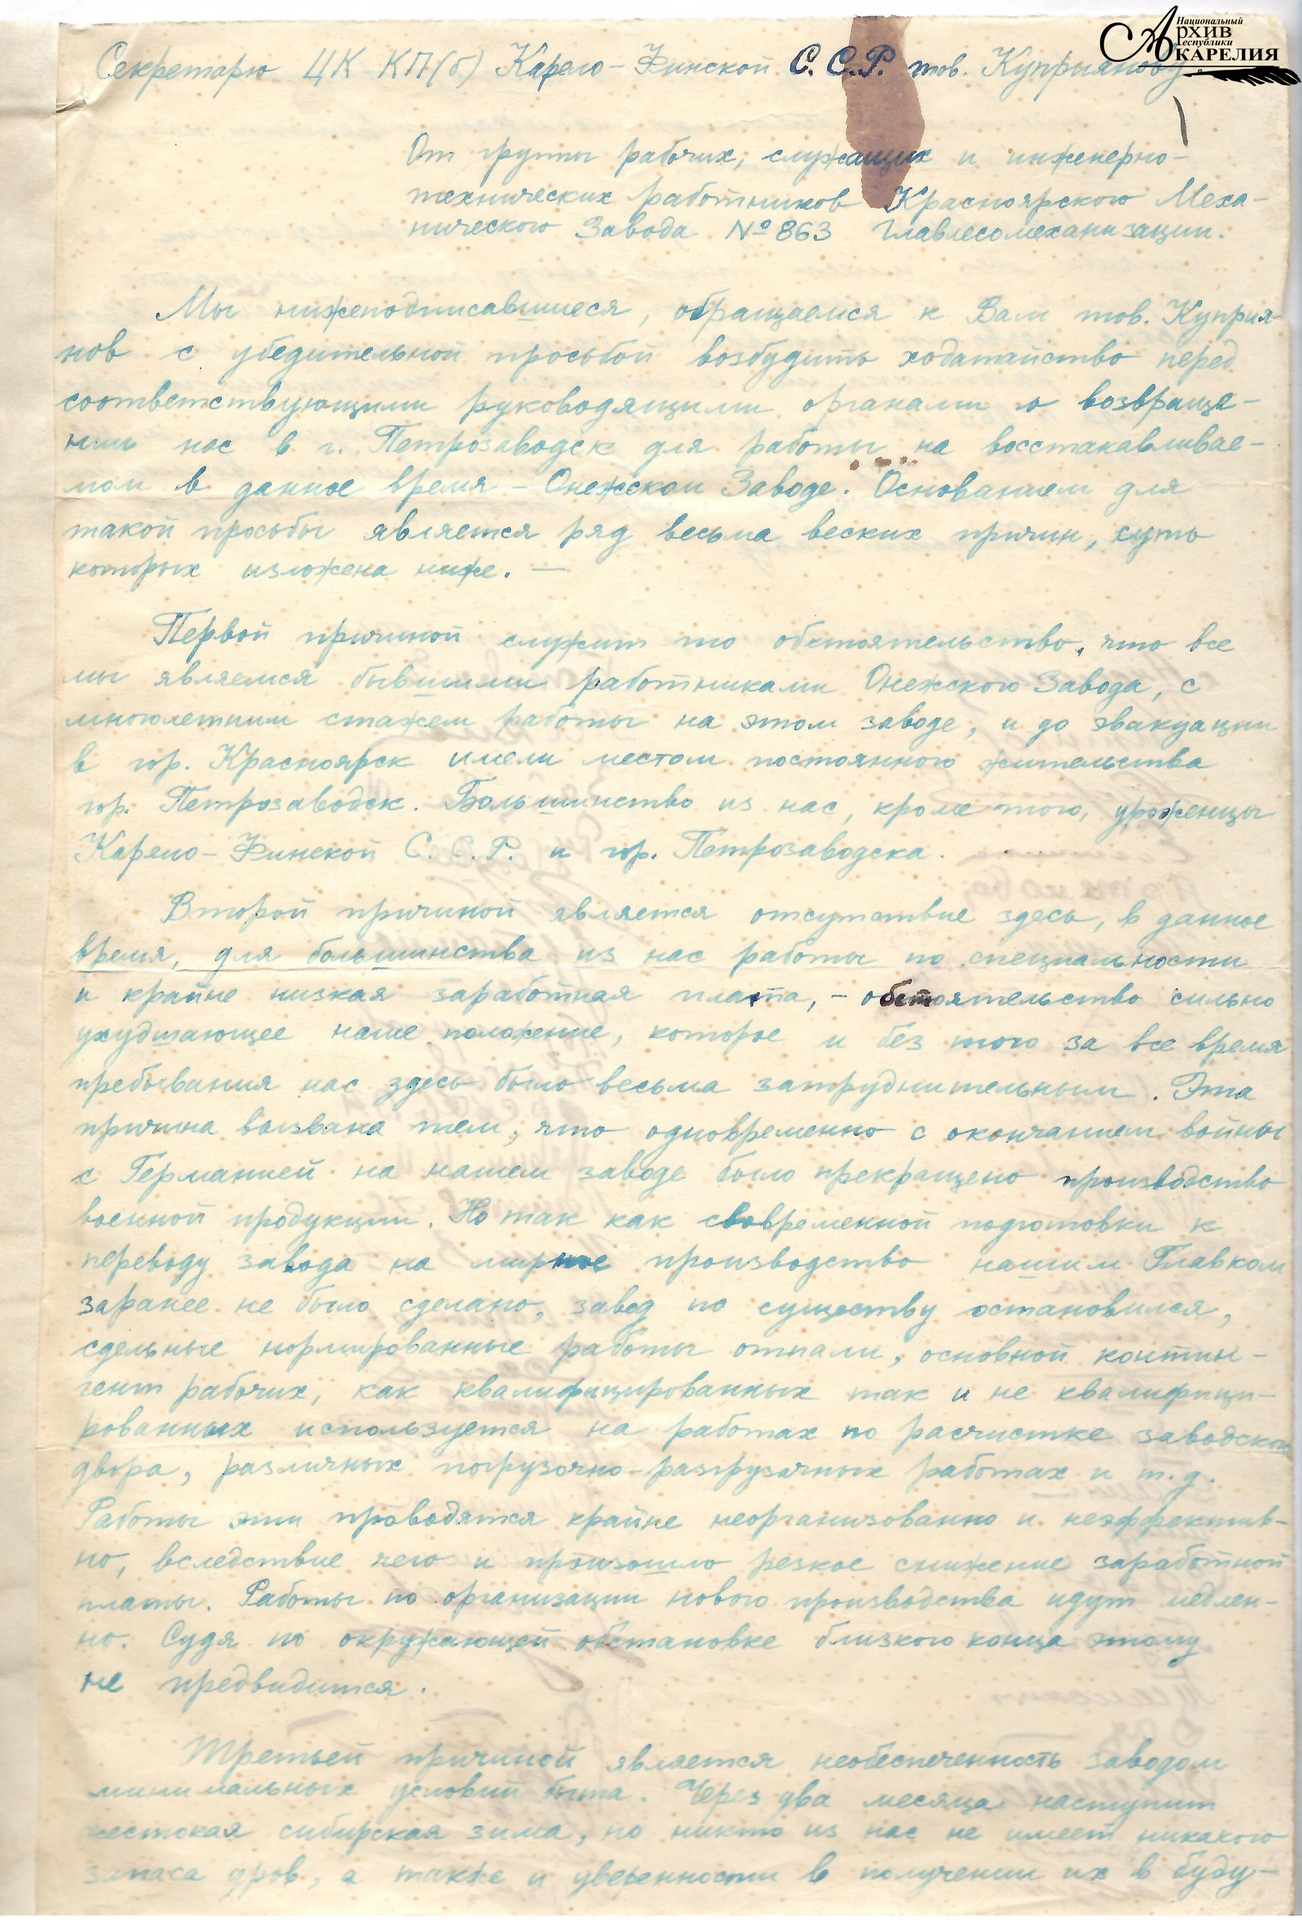 Национальный
Архив
Республики
Карелия
Секретарю ЦК КП(б) Карело-Финской С.С.Р. тов. Куприянову.
От группы рабочих, служащих и инженерно-
технических работников Красноярского Меха-
нического Завода № 863 Главлесомеханизации.
Мы нижеподписавшиеся, обращаемся к Вам тов. Куприя-
нов с убедительной просьбой возбудить ходатайство перед
соответствующими руководящими органами о возвраще-
нии нас в г. Петрозаводск для работы на восстанавливае-
мом в данное время - Онежском Заводе. Основанием для
такой просьбы является ряд весьма веских причин, суть
которых изложена ниже. —
Первой причиной служит то обстоятельство, что все
мы являемся бывшими работниками Онежского Завода, с
многолетним стажем работы на этом заводе, и до эвакуации
в гор. Красноярск имели местом постоянного жительства
гор. Петрозаводск. Большинство из нас, кроме того, уроженцы
Карело-Финской С.С.Р. и гор. Петрозаводска.
Второй причиной является отсутствие здесь, в данное
время, для большинства из нас работы по специальности
и крайне низкая заработная плата, - обстоятельство сильно
ухудшающее наше положение, которое и без того за все время
пребывания нас здесь было весьма затруднительным. Эта
причина вызвана тем, что одновременно с окончанием войны
с Германией на нашем заводе было прекращено производство
военной продукции. Но так как своевременной подготовки к
переводу завода на мирное производство нашим Главком
заранее не было сделано, завод по существу остановился,
сдельные нормированные работы отпали, основной контин-
гент рабочих, как квалифицированных так и не квалифици-
рованных используется на работах по расчистке заводского
двора, различных погрузочно-разгрузочных работах и т.д.
Работы эти проводятся крайне неорганизованно и неэффектив-
но, вследствие чего и произошло резкое снижение заработной
платы. Работы по организации нового производства идут медлен-
но. Судя по окружающей обстановке близкого конца этому
не предвидится.
Третьей причиной является необеспеченность заводом
минимальных условий быта. Через два месяца наступит
жестокая сибирская зима, но никто из нас не имеет никакого
запаса дров, а также и уверенности в получении их в буду-